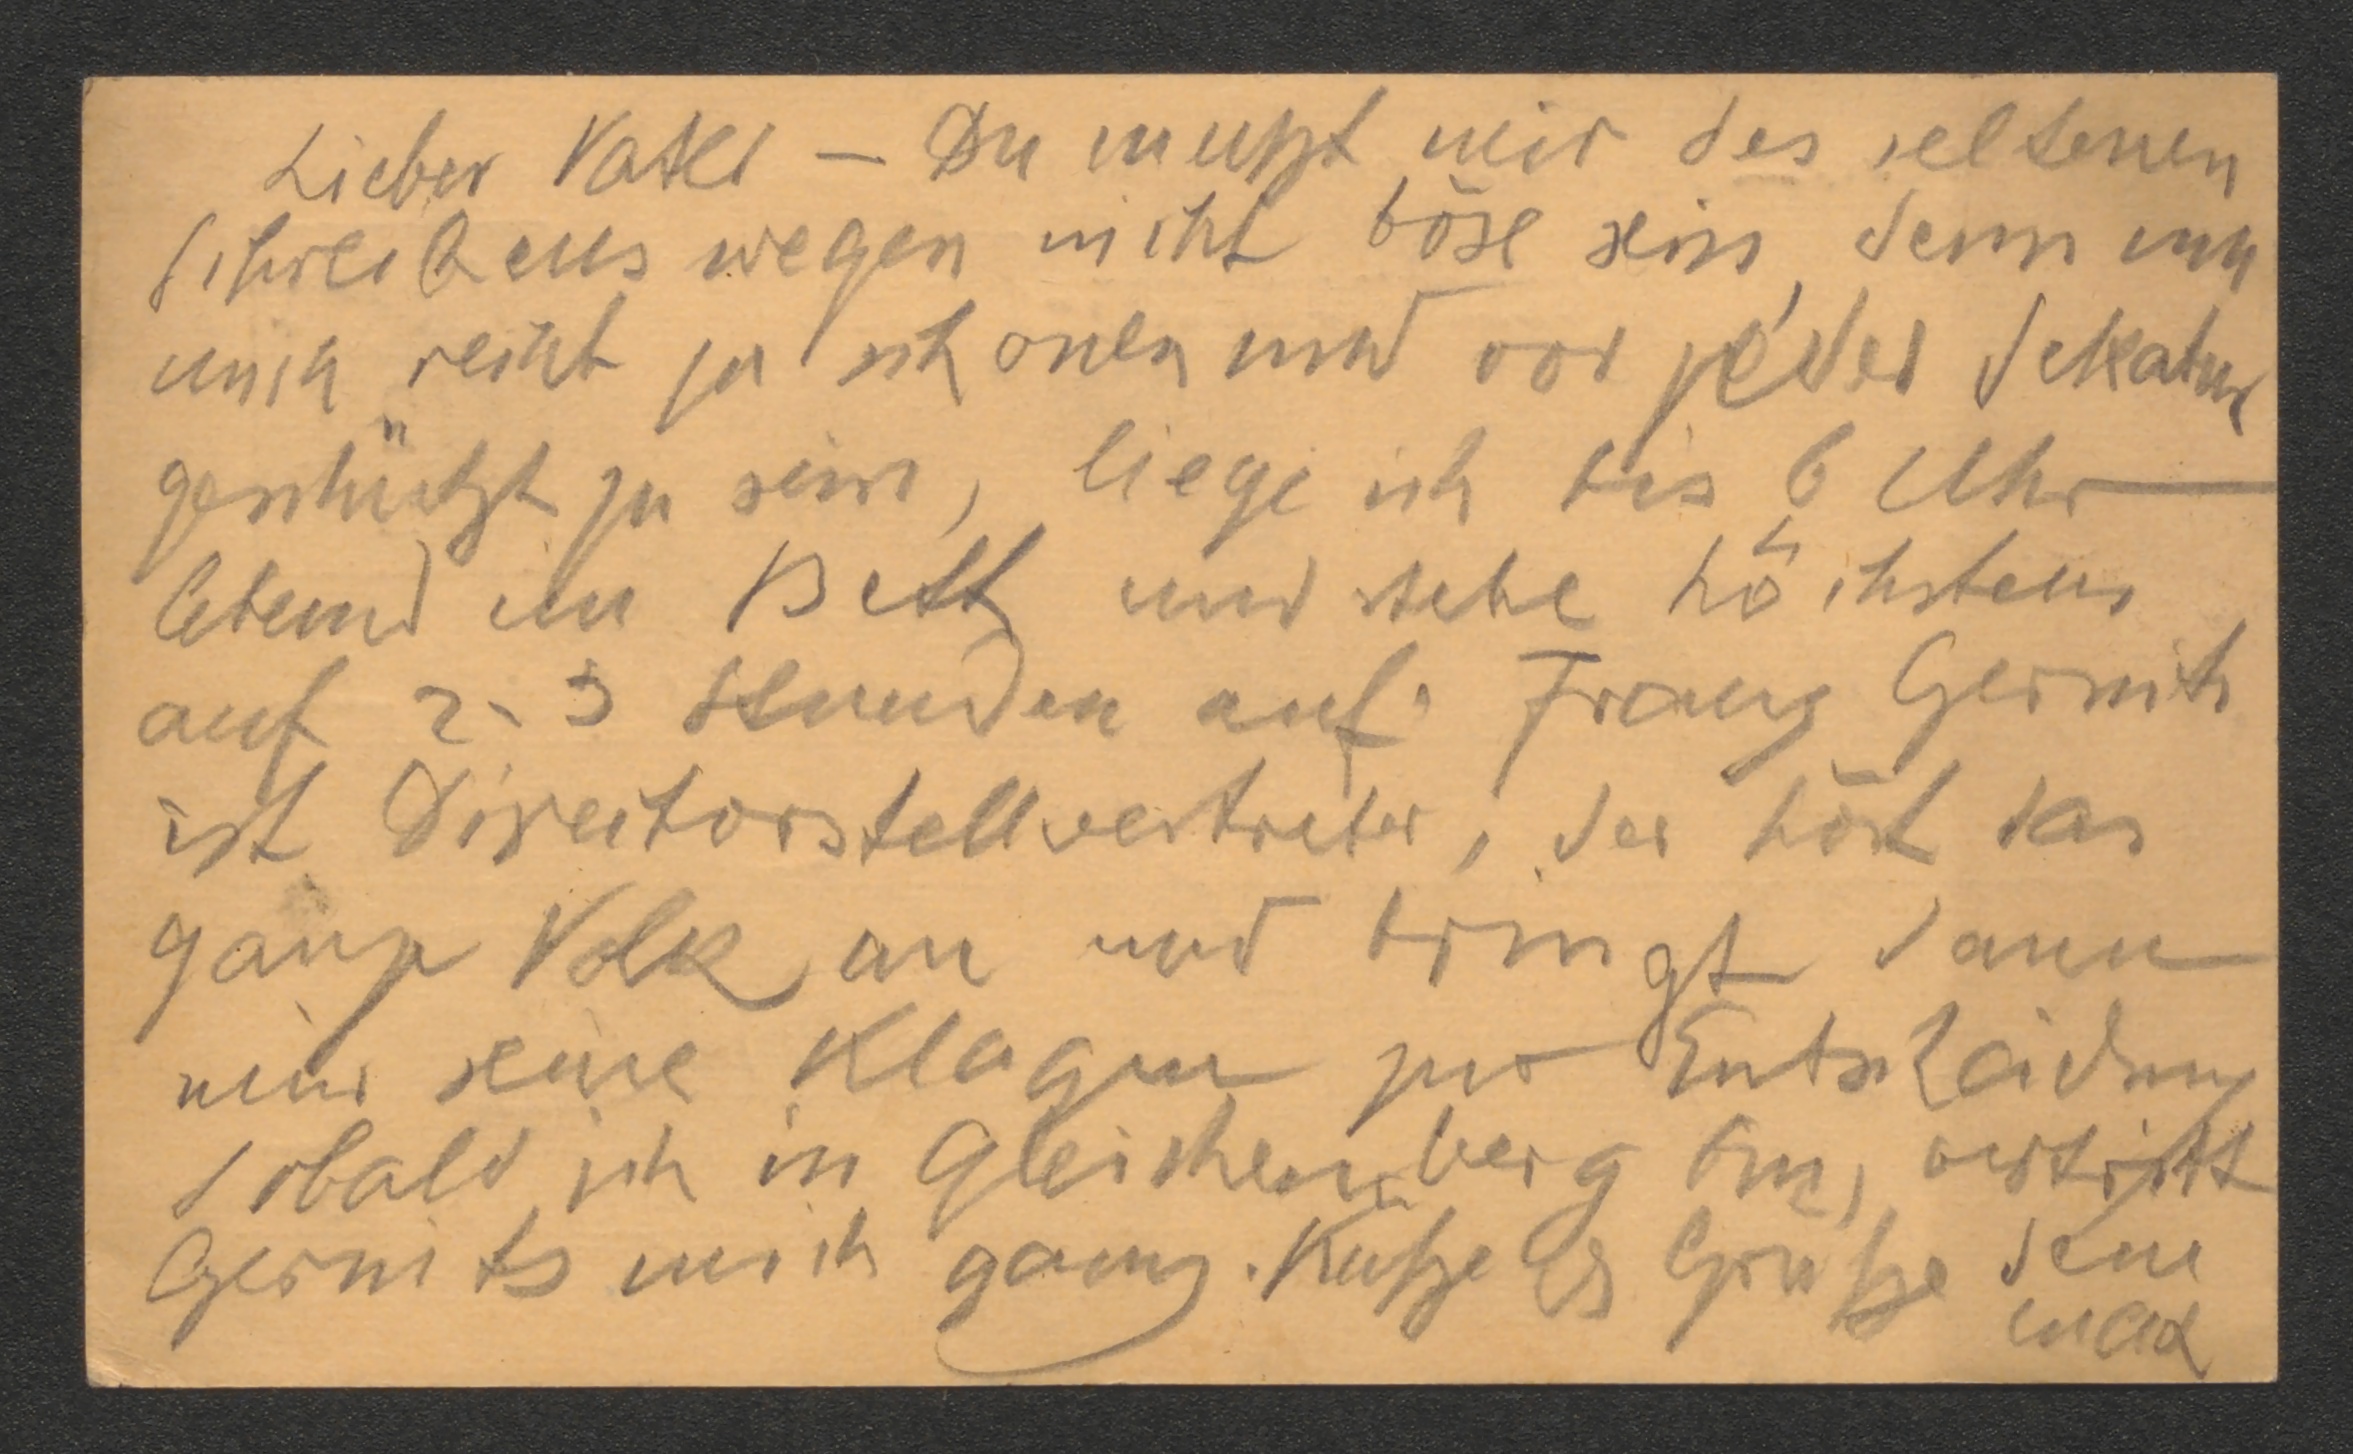 Lieber Vater — Du mußt mir des seltenen
Schreibens wegen nicht böse sein, denn um
mich recht zu schonen und vor jeder Sekatur
geschützt zu sein, liege ich bis 6 Uhr
Abend im Bett und stehe höchstens
auf 2-3 Stunden auf. Franz Germits
ist Directorstellvertreter, der hört das
ganze Volk an und bringt dann
mir seine Klagen zur Entscheidung
Sobald ich in Gleichenberg bin, vertritt
Germits mich ganz. Küße & Grüße Dein
Max